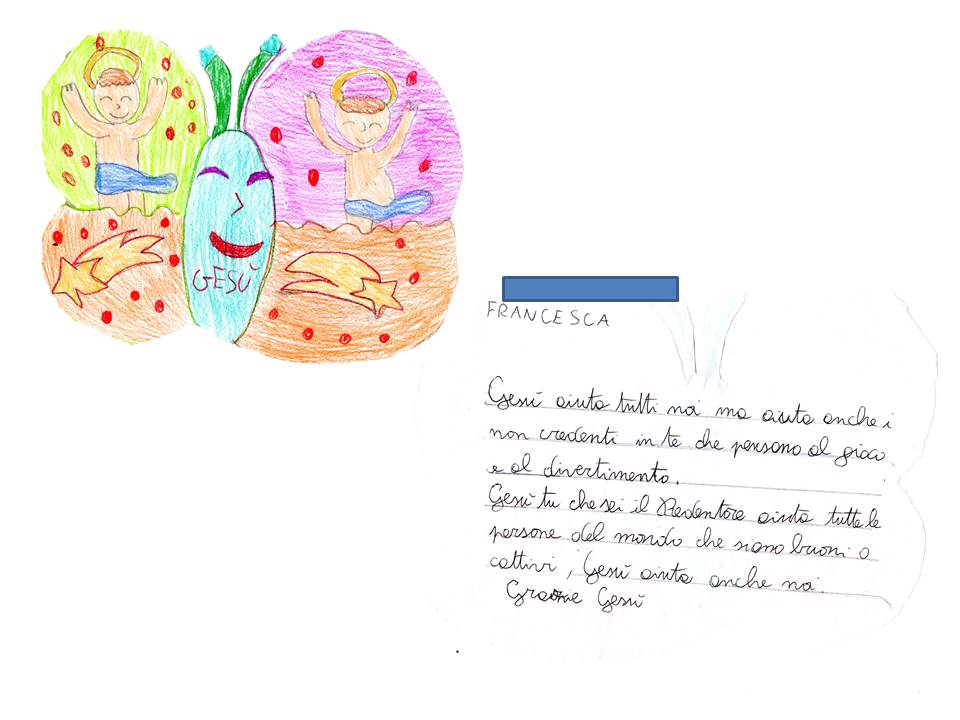 GESÙ
FRANCESCA
Gesù aiuta tutti noi ma aiuta anche i
non credenti in te che pensono al gioco
e al divertimento.
Gesù tu che sei il Redentore aiuta tutte le
persone del mondo che siano buoni o
cattivi, Gesù aiuta anche noi.
Grazie Gesù